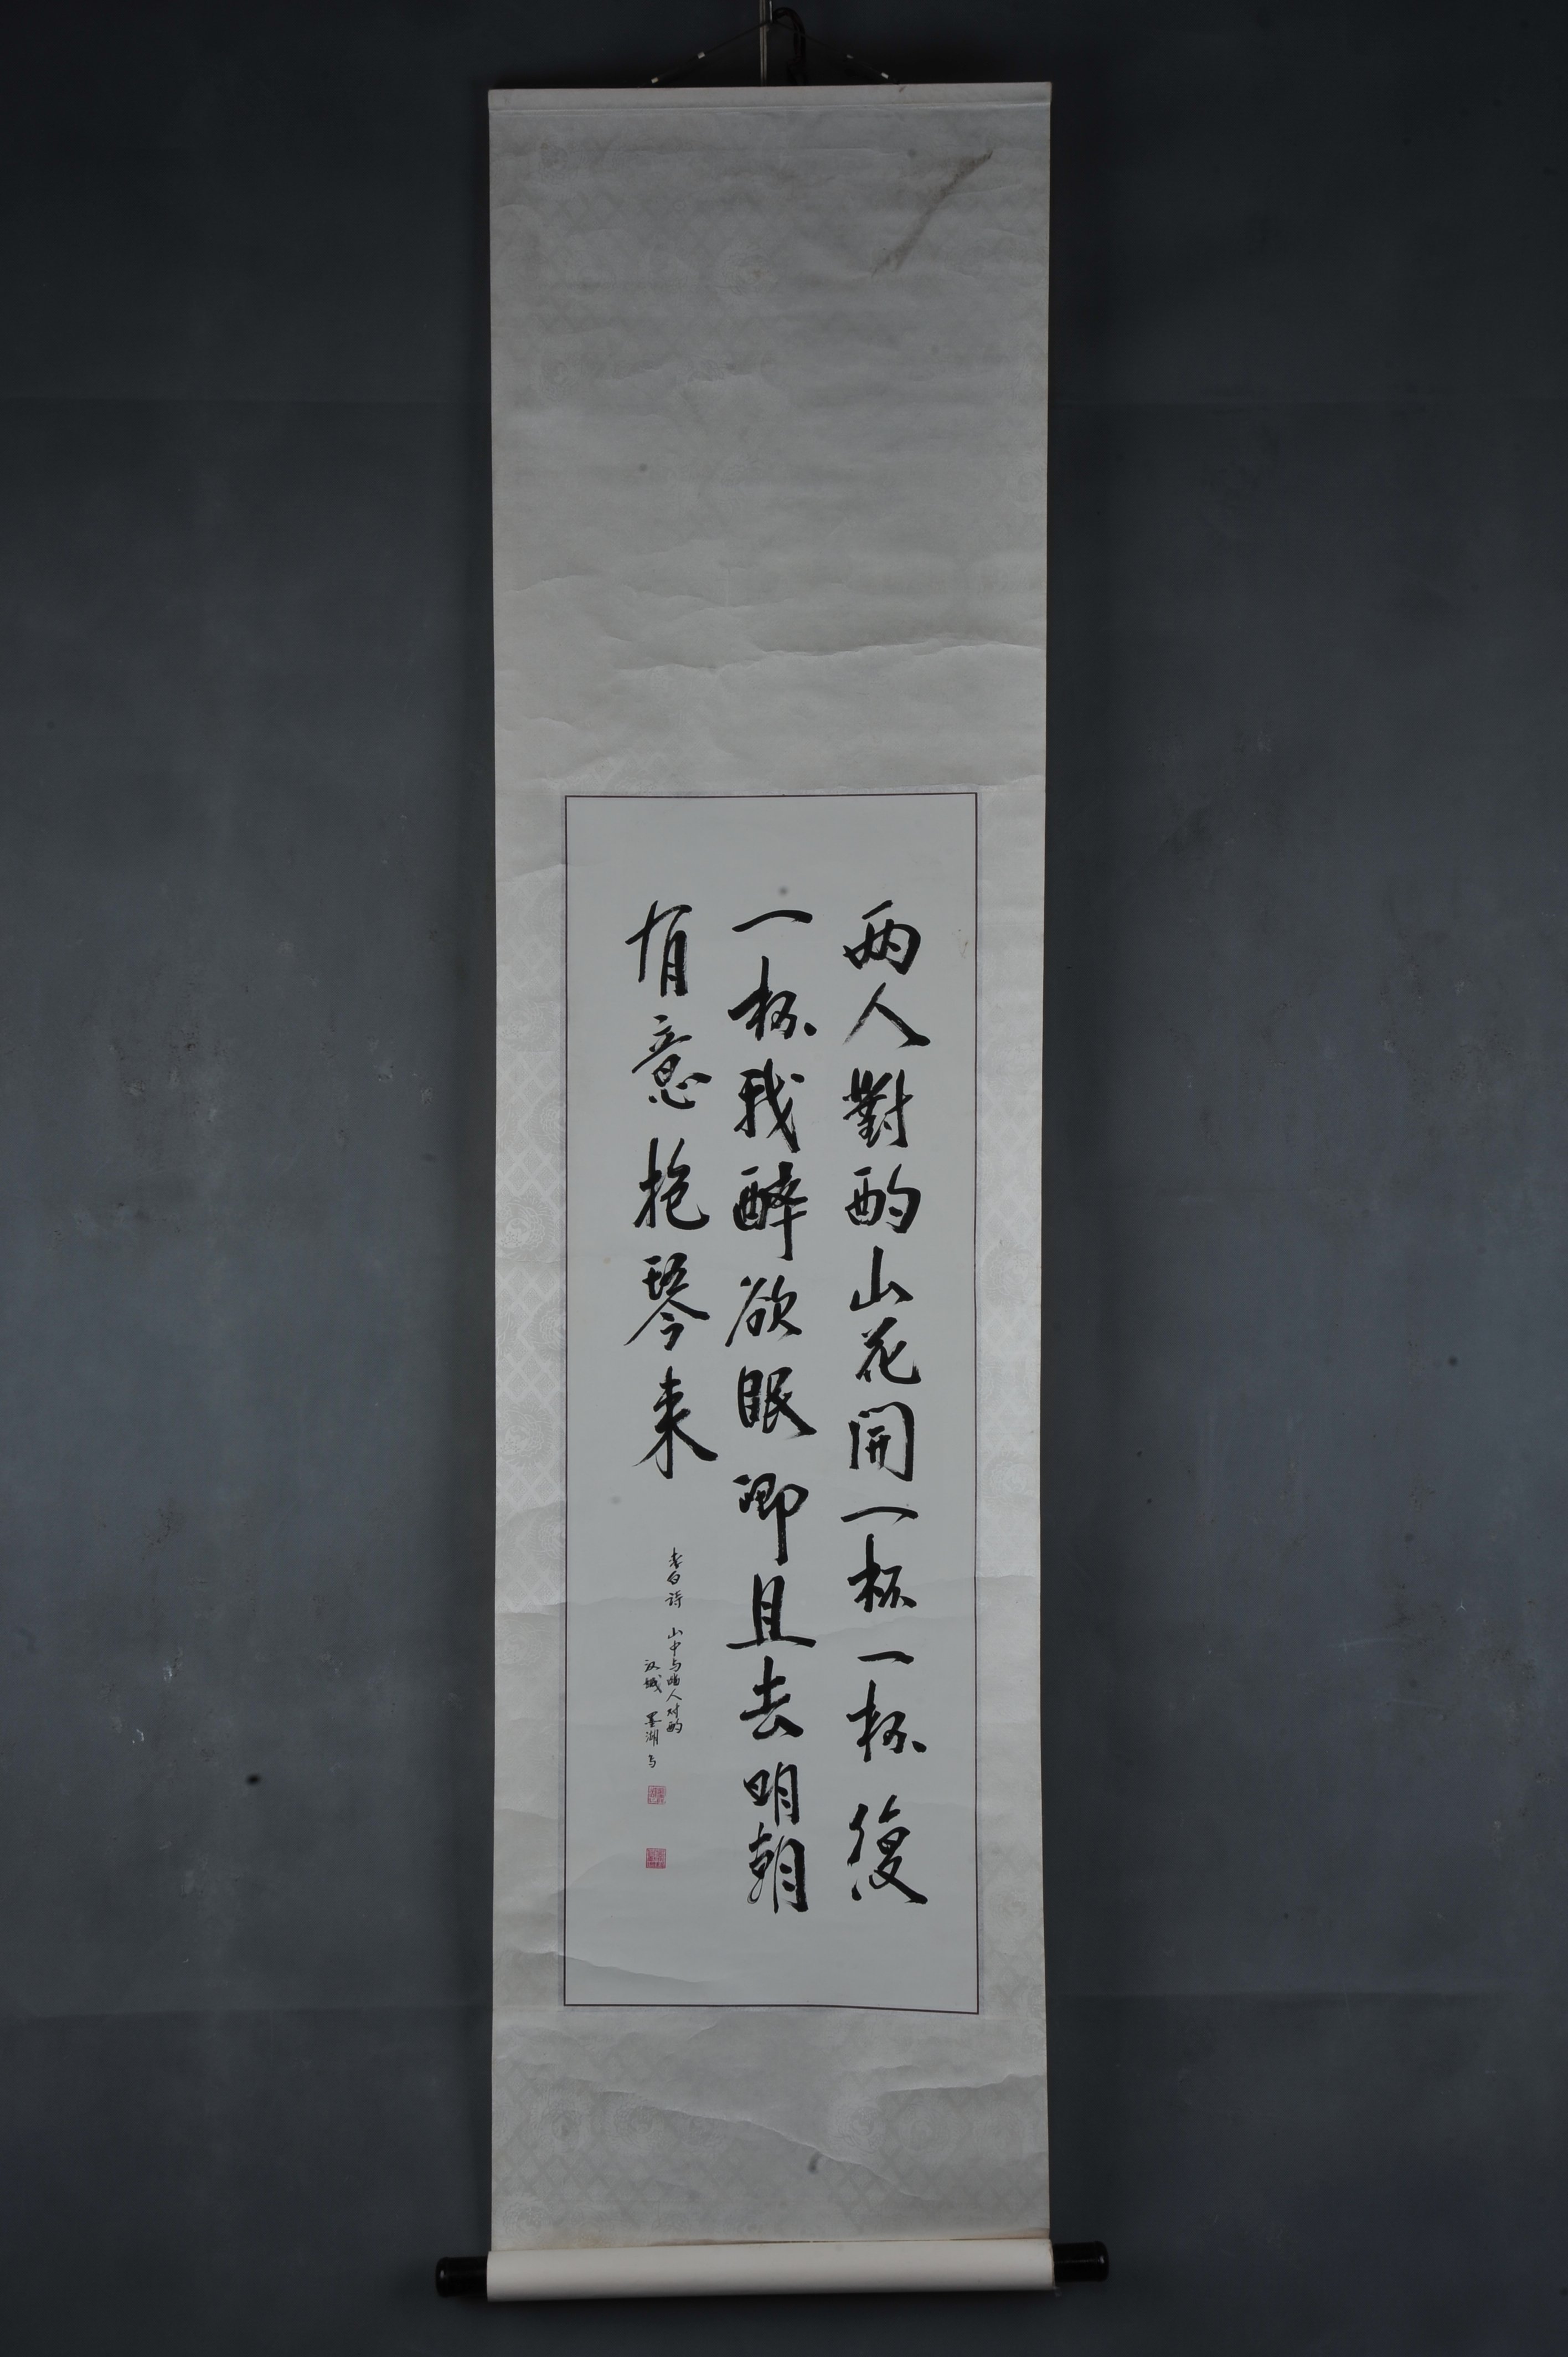 两人對酌山花開一杯一杯復
一杯我醉欲眠卿且去明朝
有意抱琴来
李白诗 山中与幽人对酌
汉城 墨湖 书